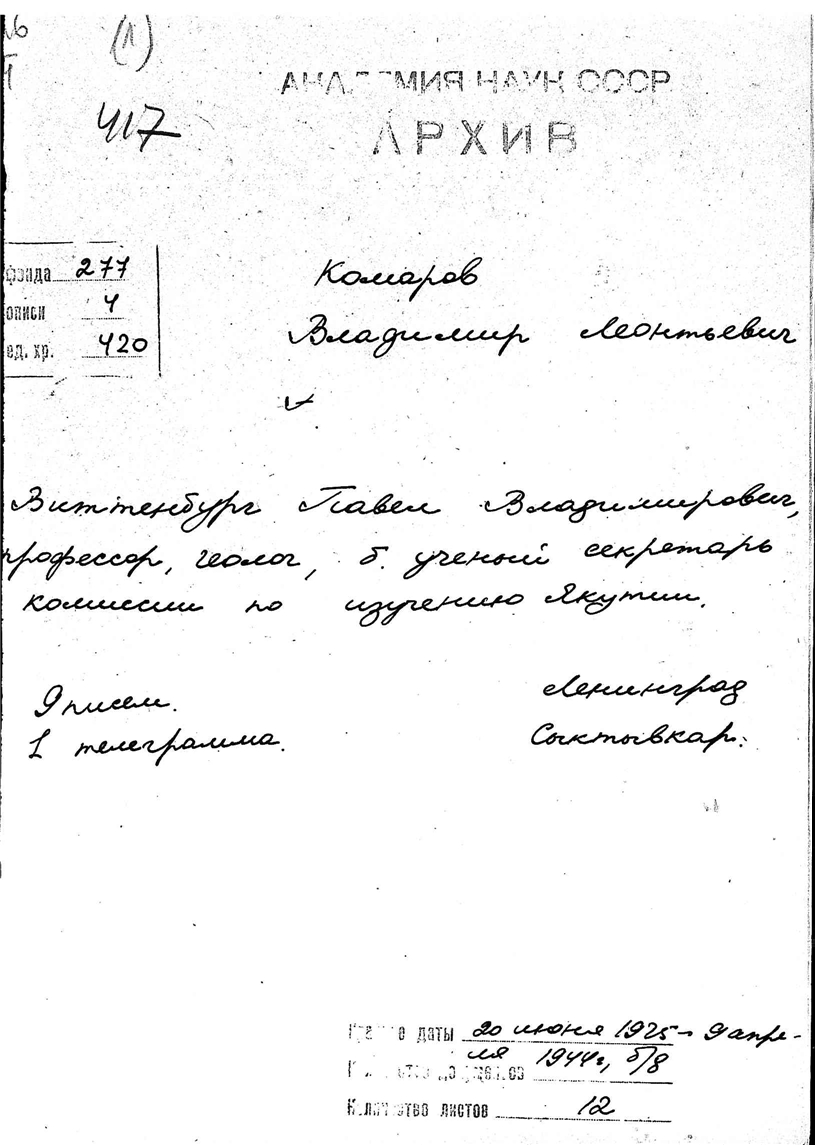 (1)
417
АКАДЕМИЯ НАУК СССР
АРХИВ
фонда 277
описи 4
ед. хр. 420
Комаров
Владимир Леонтьевич
Виттенбург Павел Владимирович,
профессор, геолог, б. ученый секретарь
комиссии по изучению Якутии.
9 писем.
1 телеграмма.
Ленинград
Сыктывкар.
Крайние даты 20 июня 1925 – 9 апре-
ля 1944г, б/д
Количество документов
Количество листов 12